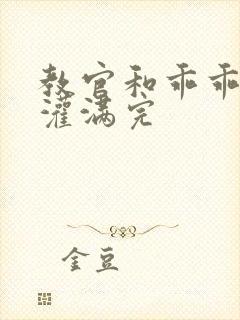 教官和乖乖
灌满完
金豆